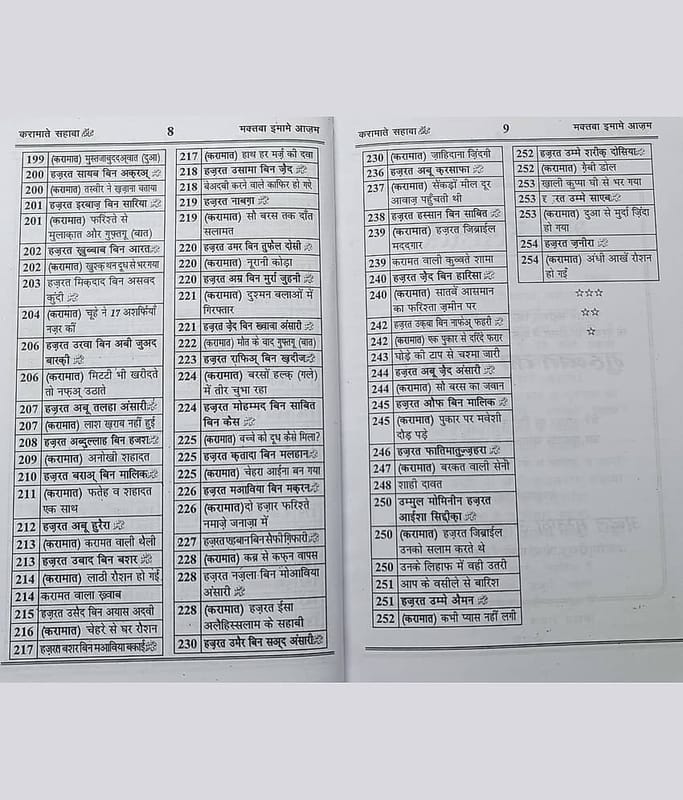 करामाते सहाबा ﷺ 8 मक्तबा इमामे आज़म
199 (करामात) मुस्तजाबुददअ्वात (दुआ)
200 हज़रत सायब बिन अक़रअ्
200 (करामात) तस्वीर ने खज़ाना बताया
201 हज़रत इरबाज़ बिन सारिया
201 (करामात) फरिश्ते से
मुलाक़ात और गुफ़्तगू (बात)
202 हज़रत ख़ुब्बाब बिन आरत
202 (करामात) खुश्क थन दूध से भर गया
203 हज़रत मिक़दाद बिन असवद
कुंदी
204 (करामात) चूहे ने 17 अशर्फियाँ
नज़र कीं
206 हज़रत उरवा बिन अबी जुअद
बारक़ी
206 (करामात) मिटटी भी खरीदते
तो नफ्अ् उठाते
207 हज़रत अबू तलहा अंसारी
207 (करामात) लाश ख़राब नहीं हुई
208 हज़रत अब्दुल्लाह बिन हजश
209 (करामात) अनोखी शहादत
210 हज़रत बराअ् बिन मालिक
211 (करामात) फतेह व शहादत
एक साथ
212 हज़रत अबू हुरैरा
213 (करामात) करामत वाली थैली
213 हज़रत उबाद बिन बशर
214 (करामात) लाठी रौशन हो गई
214 करामत वाला ख़्वाब
215 हज़रत उसैद बिन अयास अदवी
216 (करामात) चेहरे से घर रौशन
217 हज़रत बशर बिन मआविया बकाई
217 (करामात) हाथ हर मर्ज़ की दवा
218 हज़रत उसामा बिन ज़ैद
218 बेअदबी करने वाले काफिर हो गए
219 हज़रत नाबग़ा
219 (करामात) सौ बरस तक दाँत
सलामत
220 हज़रत उमर बिन तुफैल दोसी
220 (करामात) नूरानी कोड़ा
220 हज़रत अम्र बिन मुर्रा जुहनी
221 (करामात) दुश्मन बलाओं में
गिरफ्तार
221 हज़रत ज़ैद बिन ख्वाबा अंसारी
222 (करामात) मौत के बाद गुफ़्तगू (बात)
223 हज़रत राफिअ् बिन ख़दीज
224 (करामात) बरसों हल्क़ (गले)
में तीर चुभा रहा
224 हज़रत मोहम्मद बिन साबित
बिन क़ैस
225 (करामात) बच्चे को दूध कैसे मिला?
225 हज़रत क़तादा बिन मलहान
225 (करामात) चेहरा आईना बन गया
226 हज़रत मआविया बिन मक़रन
226 (करामात)दो हज़ार फरिश्ते
नमाज़े जनाज़ा में
227 हज़रत एहबान बिन सैफी ग़िफारी
228 (करामात) क़ब्र से कफ़न वापस
228 हज़रत नज़ला बिन मोआविया
अंसारी
228 (करामात) हज़रत ईसा
अलैहिस्सलाम के सहाबी
230 हज़रत उमैर बिन सअ्द अंसारी
करामाते सहाबा ﷺ 9 मक्तबा इमामे आज़म
230 (करामात) ज़ाहिदाना ज़िंदगी
236 हज़रत अबू क़रसाफा
237 (करामात) सैंकड़ों मील दूर
आवाज़ पहुँचती थी
238 हज़रत हस्सान बिन साबित
239 (करामात) हज़रत जिब्राईल
मददगार
239 करामत वाली कुव्वते शामा
240 हज़रत ज़ैद बिन हारिसा
240 (करामात) सातवें आसमान
का फरिश्ता ज़मीन पर
242 हज़रत उक़बा बिन नाफेअ् फहरी
242 (करामात) एक पुकार से दरिंदे फरार
243 घोड़े की टाप से चश्मा जारी
244 हज़रत अबू ज़ैद अंसारी
244 (करामात) सौ बरस का जवान
245 हज़रत औफ बिन मालिक
245 (करामात) पुकार पर मवेशी
दौड़ पड़े
246 हज़रत फातिमातुज़्ज़हरा
247 (करामात) बरकत वाली सेनी
248 शाही दावत
250 उम्मुल मोमिनीन हज़रत
आईशा सिद्दीक़ा
250 (करामात) हज़रत जिब्राईल
उनको सलाम करते थे
250 उनके लिहाफ में वही उतरी
251 आप के वसीले से बारिश
251 हज़रत उम्मे ऐमन
252 (करामात) कभी प्यास नहीं लगी
252 हज़रत उम्मे शरीक़ दोसिया
252 (करामात) ग़ैबी डोल
253 ख़ाली कुप्पा घी से भर गया
253 रत उम्मे साएब
253 (करामात) दुआ से मुर्दा ज़िंदा
हो गया
254 हज़रत ज़नीरा
254 (करामात) अंधी आखें रौशन
हो गईं
☆☆☆
☆☆
☆